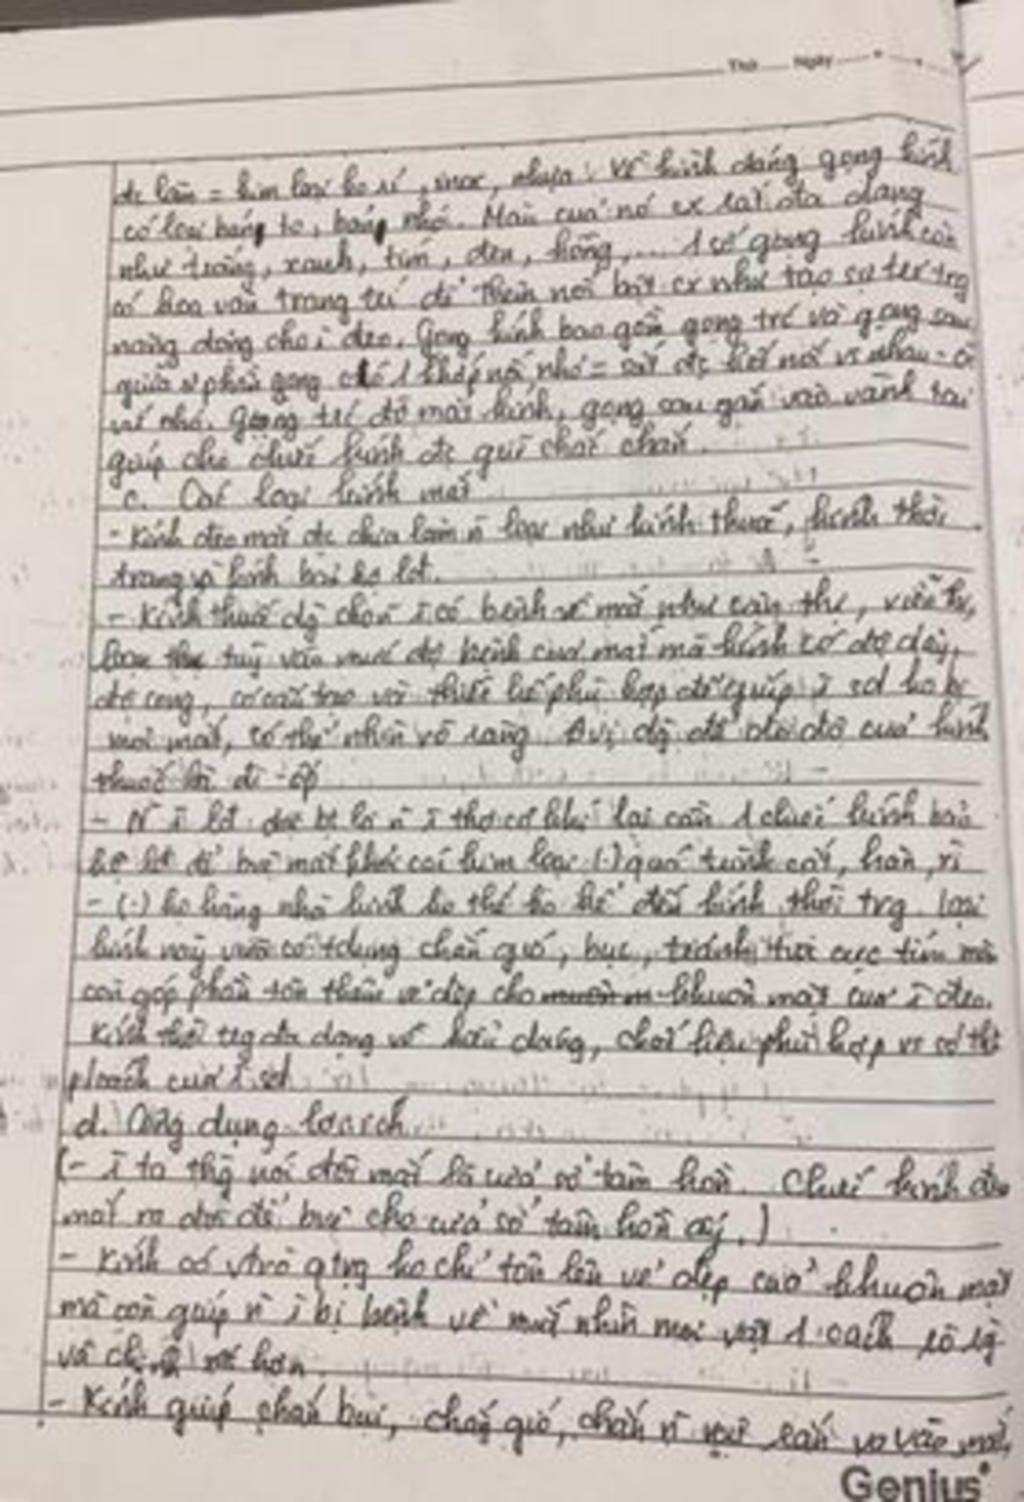 Thứ Ngày
đc làm = kim loại ko rỉ, inox, nhựa. Về hình dáng gọng kính
có loại bảng to, bảng nhỏ. Màu của nó cx rất đa dạng
như trắng, xanh, tím, đen, hồng,... 1 số gọng kính còn
có hoa văn trang trí để thêm nổi bật cx như tạo sự trẻ trg
năng động cho i đeo. Gọng kính bao gồm gọng trc và gọng sau
giữa phần gọng có 1 khớp nối nhỏ = sắt đc kết nối vs nhau =
vít nhỏ. Gọng trc đỡ mắt kính, gọng sau gắn vào vành tai
giúp cho chiếc kính đc giữ chắc chắn.
c. Các loại kính mắt
- Kính đeo mắt đc chia làm n loại như kính thuốc, kính thời
trang và kính bảo hộ lđ.
- Kính thuốc dg cho n i có bệnh về mắt như cận thị, viễn thị,
loạn thị tuỳ vào mức độ bệnh của mắt mà kính có độ dày,
độ cong, có cấu tạo và thiết kế phù hợp để giúp i sd ko bị
mỏi mắt, có thể nhìn rõ ràng. Đvị dg để đo độ của kính
thuốc là đi-ốp
- N i lđ đặc bt là n i thợ cơ khí lại cần 1 chiếc kính bảo
hộ lđ để bvệ mắt khỏi các kim loại (.) quá trình cắt, hàn, xì
- (.) họ hàng nhà kính ko thể ko kể đến kính thời trg. Loại
kính này vừa có tdụng chắn gió, bụi, tránh tia cực tím mà
còn góp phần tôn thêm vẻ đẹp cho khuôn mặt của i đeo.
Kính thời trg đa dạng về kiểu dáng, chất liệu phù hợp vs sở thích
của i sd
d. Công dụng, lợi ích
(- i ta thg nói đôi mắt là cửa sổ tâm hồn. Chiếc kính đeo
mắt ra đời để bvệ cho cửa sổ tâm hồn ấy.)
- Kính có vtrò qtrg ko chỉ tôn lên vẻ đẹp của khuôn mặt
mà còn giúp n i bị bệnh về mắt nhìn mọi vật 1 cách rõ rg
và hơn.
- Kính giúp chắn bụi, chắn gió, chắn n vật rắn va vào mắt,
Genius